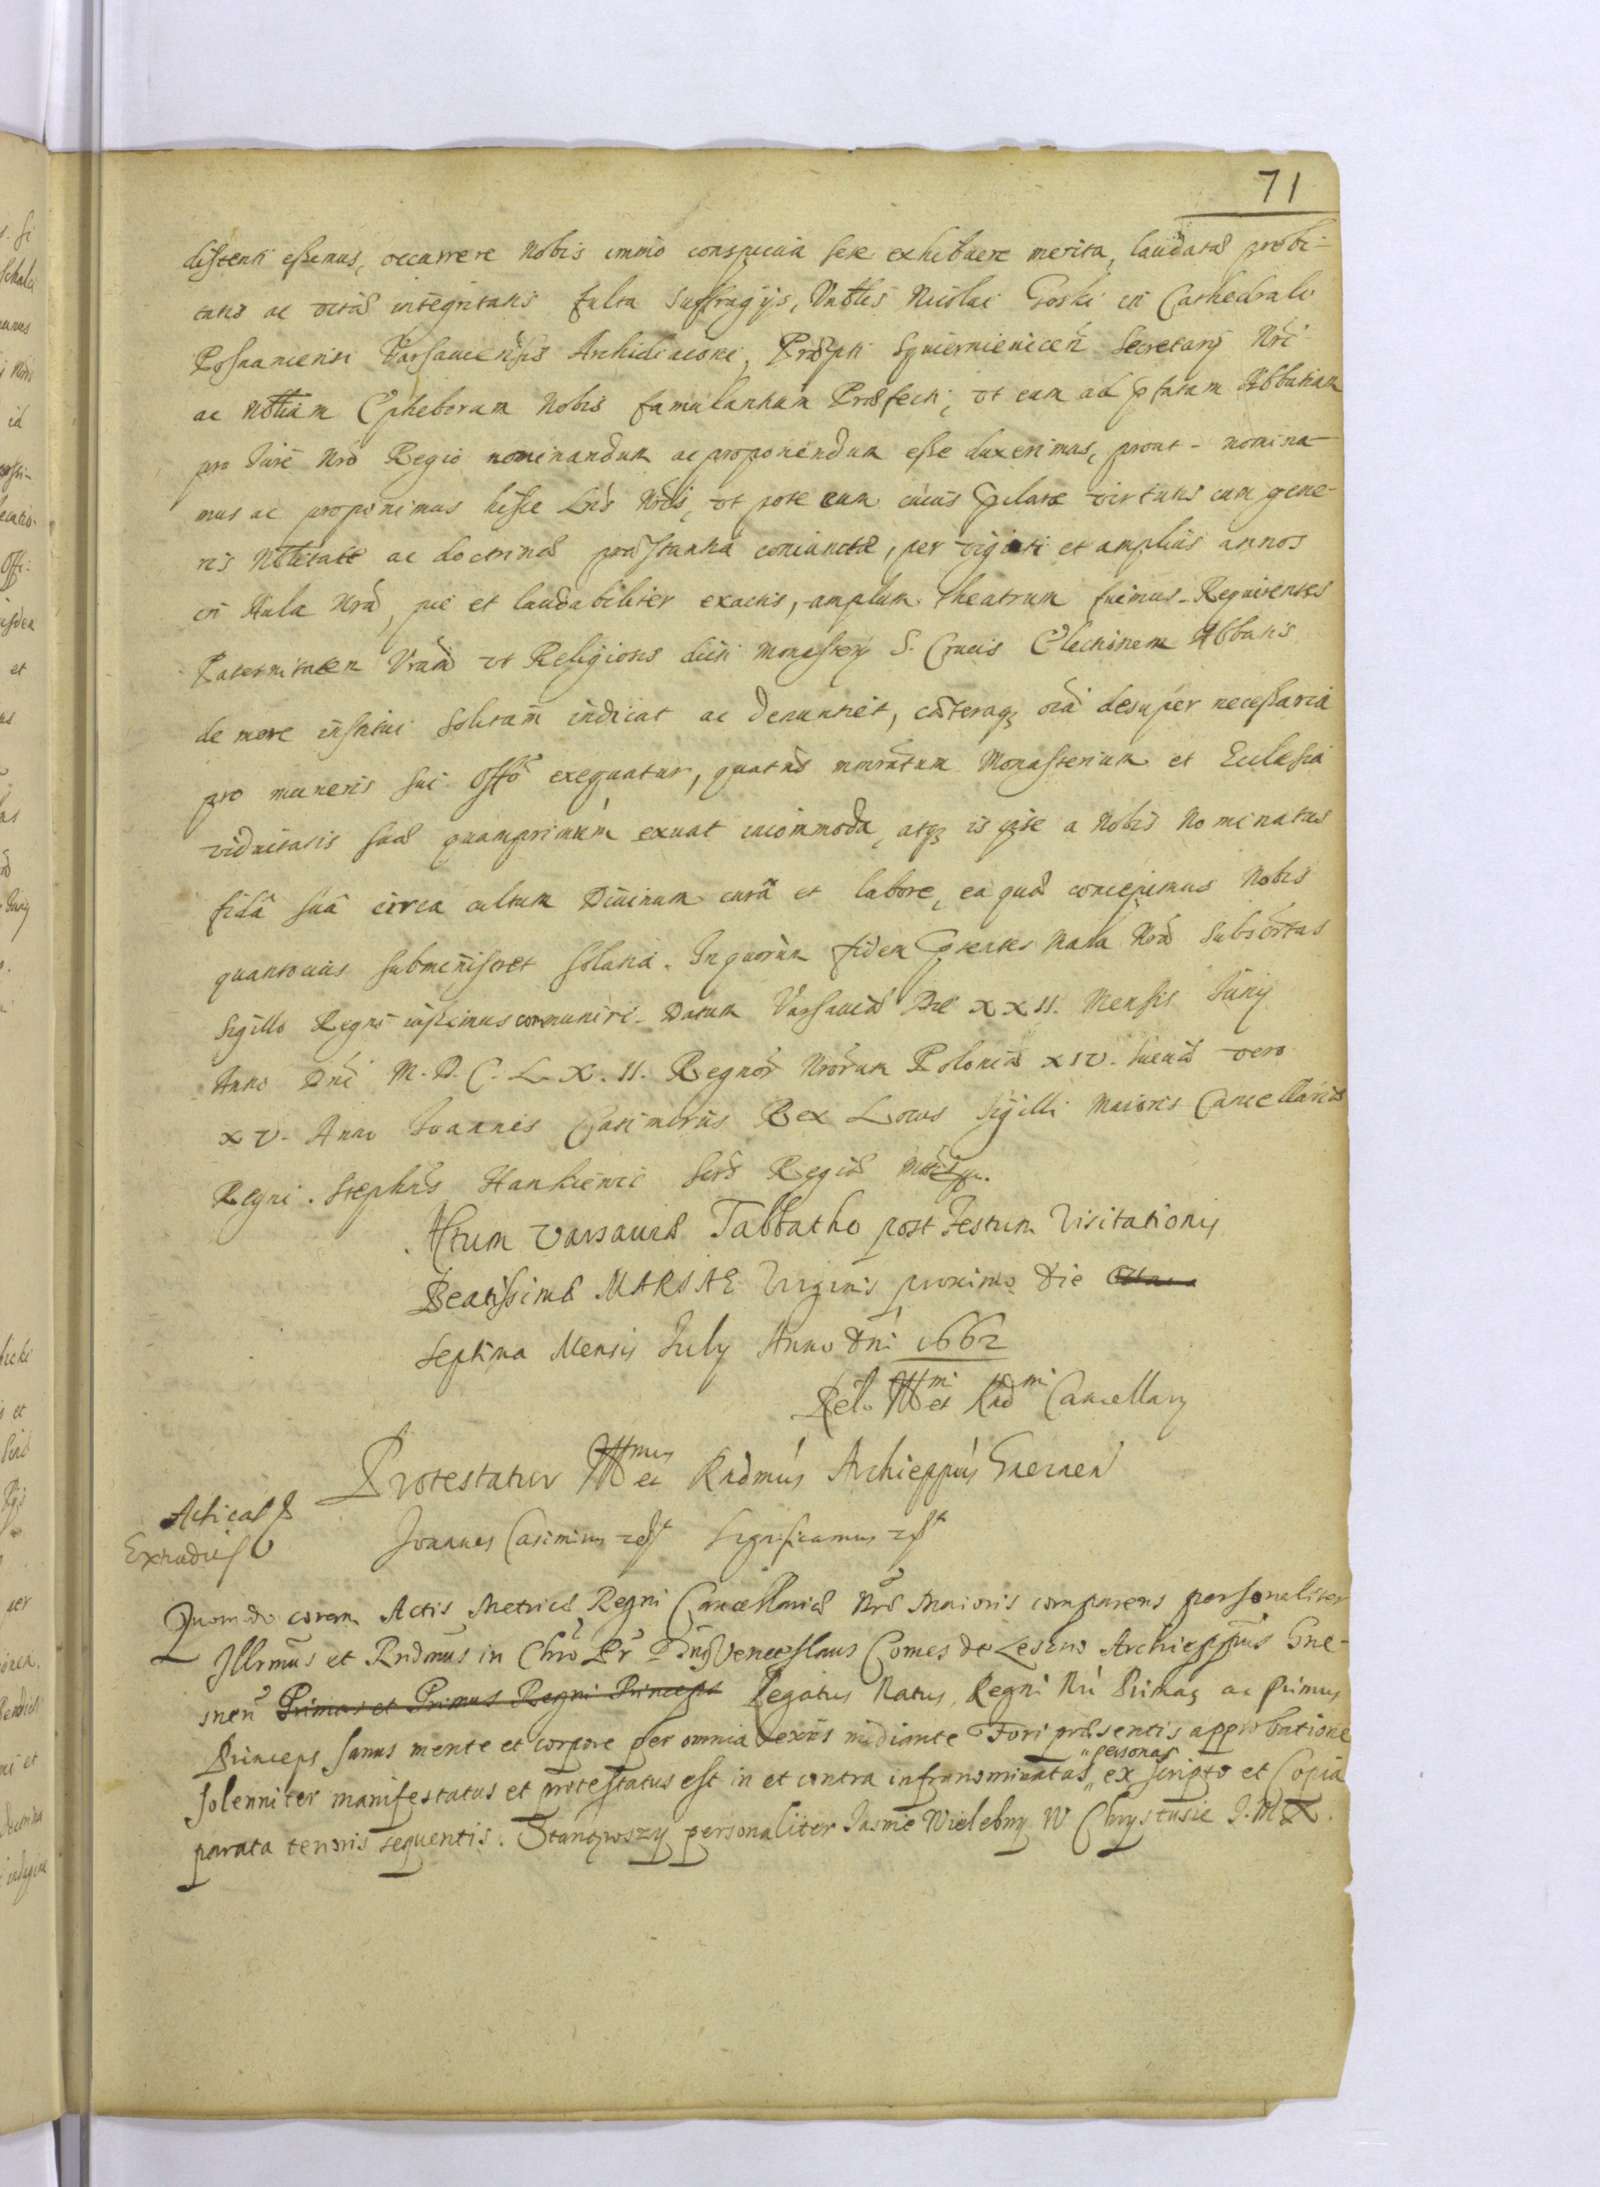 71
distenti essemus, occurrere Nobis immo conspicua sese exhibuere merita, laudatæ probi-
tatis ac vitæ integritatis fulta suffragijs, Vnbłis Nicolai Goski in Cathedrali
Posnaniensi Varsauiensis Archidiaconi, Præpti Squiernieuicen Secretarij Nri
ac Nbłium Epheborum Nobis famulantium Præfecti, vt eum ad pfatam Abbatiam
pro Jure Nro Regio nominandum ac proponendum esse duxerimus, prout nomina-
mus ac proponimus hisce Lris Nris, vt pote eum cuius pclaræ virtutis cum gene-
ris Nbłitate ac doctrinæ præstantia coniunctæ, per viginti et amplius annos
in Aula Nra, pie et laudabiliter exactis, amplum theatrum fuimus. Requirentes
Paternitatem Vram vt Religiosis dicti Monasterij S. Crucis Electionem Abbatis
de more institui solitam indicat ac denuntiet, cæteraq oia desuper necessaria
pro muneris sui Offo exequatur, quatus mmratum Monasterium et Ecclesia
viduitatis suæ quamprimum exuat incommoda, atq is ipse a Nobis Nominatus
fidâ suâ circa cultum Diuinum curâ et labore, ea quæ concepimus Nobis
quantocius subministret solatia. In quorum fidem Psentes Manu Nra subscrtas
sigillo Regni iussimus communiri. Datum Varsauiæ Die XXII. Mensis Junij
Anno Dni M.D.C.L.X.II. Regnor Nrorum Poloniæ XIV. Sueciæ vero
XV. Anno Joannes Casimirus Rex Locus Sigilli Maioris Cancellariæ
Regni. Stephns Hankiewic Secrs Regiæ Mttis
Actum Varsauiæ Sabbatho post Festum Visitationis
Beatissimæ MARIAE Virginis proximo die
septima Mensis July Anno Dni 1662
Relo Illmi et Rnd mi Cancellarij
Protestatur Illmus et Rndmus Archieppus Gneznen
Acticat
Extradit
Joannes Casimirus Significamus
Quomodo coram Actis Metrices Regni Cancellariæ Nræ Maioris comparens personaliter
Illrmus et Rndmus in Chro Pr Dnus Venceslaus Comes de Leszno Archieppus Gne-
snen Primas et Primus Regni Princeps Legatus Natus, Regni Nri Primas ac Primus
Princeps sanus mente et corpore per omnia existens mediante Fori præsentis approbatione
solenniter manifestatus et protestatus est in et contra infranominatas "personas" ex scripto et Copia
parata tenoris sequentis. Stanąwszy personaliter Jasnie Wielebny W Chrystusie J.M.X.